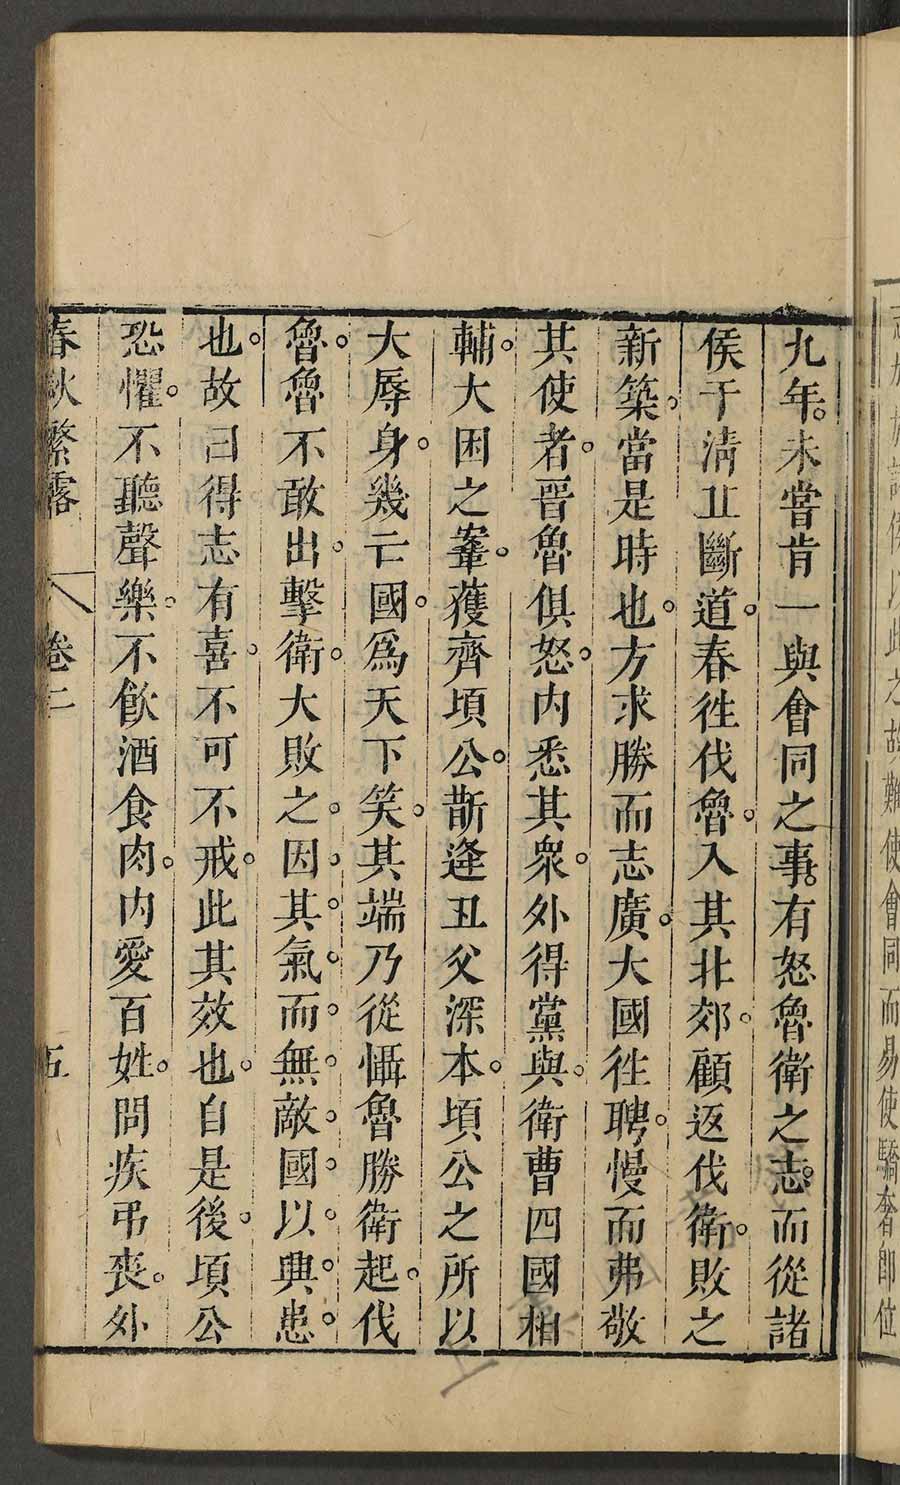 難使會同而易使驕奢即位
九年。未嘗肯一與會同之事。有怒魯衛之志。而從諸
侯于淸丘斷道。春徃伐魯。入其北郊。顧返伐衛。敗之
新築。當是時也。方求勝而志廣。大國徃聘。慢而弗敬
其使者。晉魯俱怒。内悉其衆。外得黨與。衛曹四國相
輔。大困之鞌。獲齊頃公。斮逢丑父深本。頃公之所以
大辱身。幾亡國。爲天下笑。其端乃從懾魯勝衛起。伐
魯。魯不敢出。擊衛。大敗之。因。其。氣。而。無。敵。國。以。興。患。
也。故曰得志有喜。不可不戒。此其效也。自是後。頃公
恐懼。不聽聲樂。不飮酒食肉。内愛百姓。問疾弔喪。外
春秋繁露 卷二 五